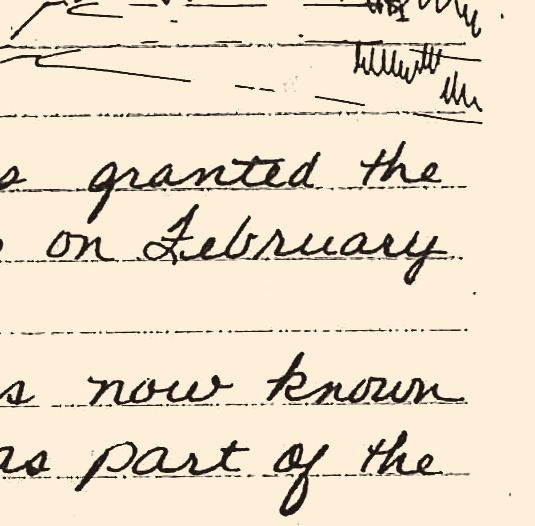 s granted the
on February
s now known
as part of the